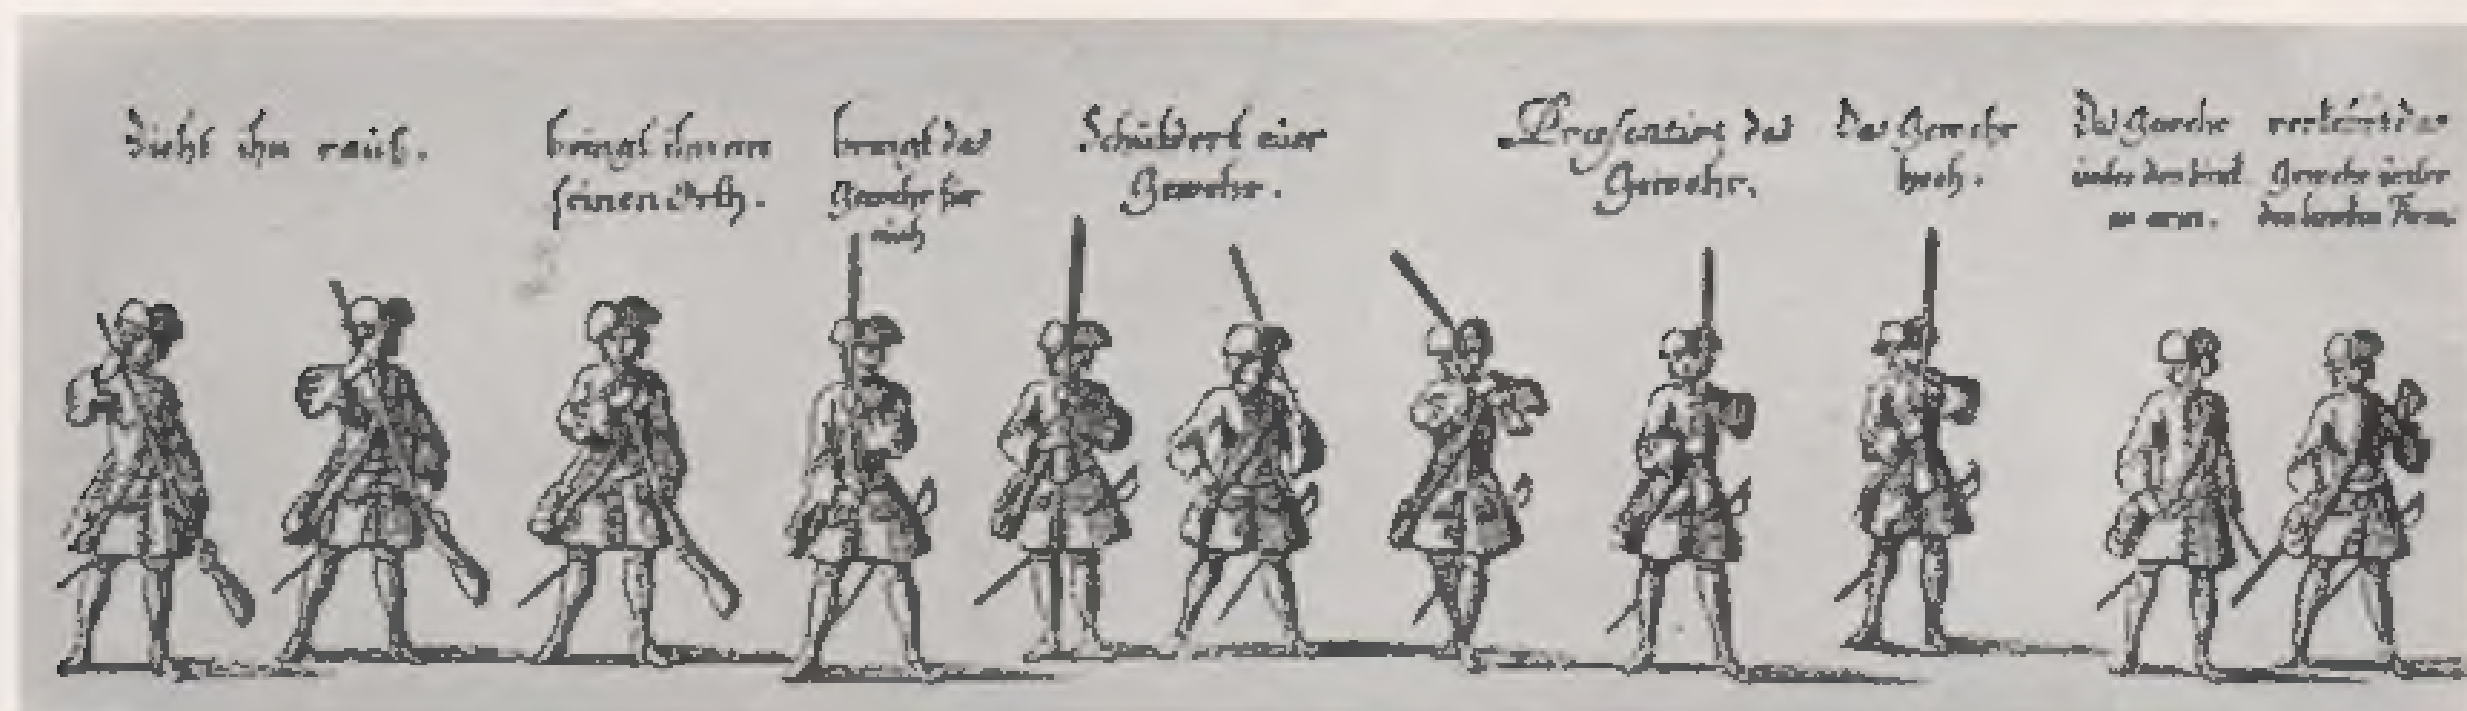 Zieht ihn rauß.
bringt ihn an
seinen Orth.
bringt das
Gewehr für
euch
Schuldert euer
Gewehr.
Præsentirt das
Gewehr.
Das Gewehr
hoch.
Das Gewehr
unter den
arm.
verkehrt das
Gewehr unter
den lincken Arm.